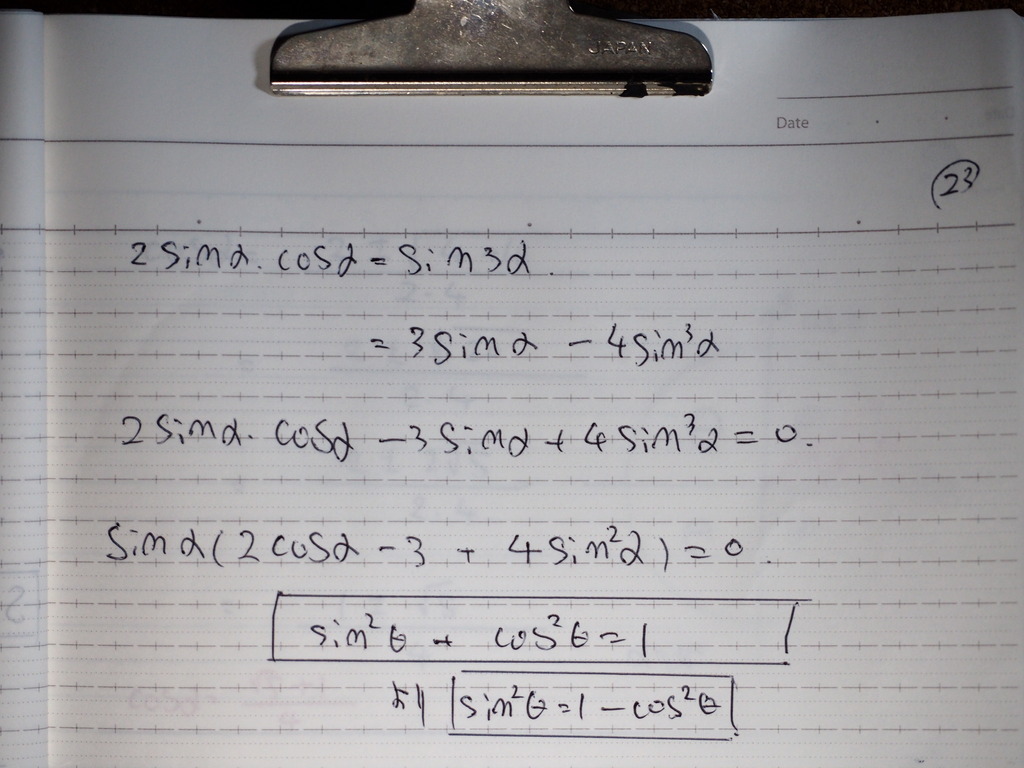 JAPAN
Date
23
2 sinα. cosα = sin3α.
= 3 sinα - 4 sin³α
2 sinα. cosα - 3 sinα + 4 sin³α = 0.
sinα(2 cosα - 3 + 4 sin²α) = 0.
sin²θ + cos²θ = 1
より sin²θ = 1 - cos²θ